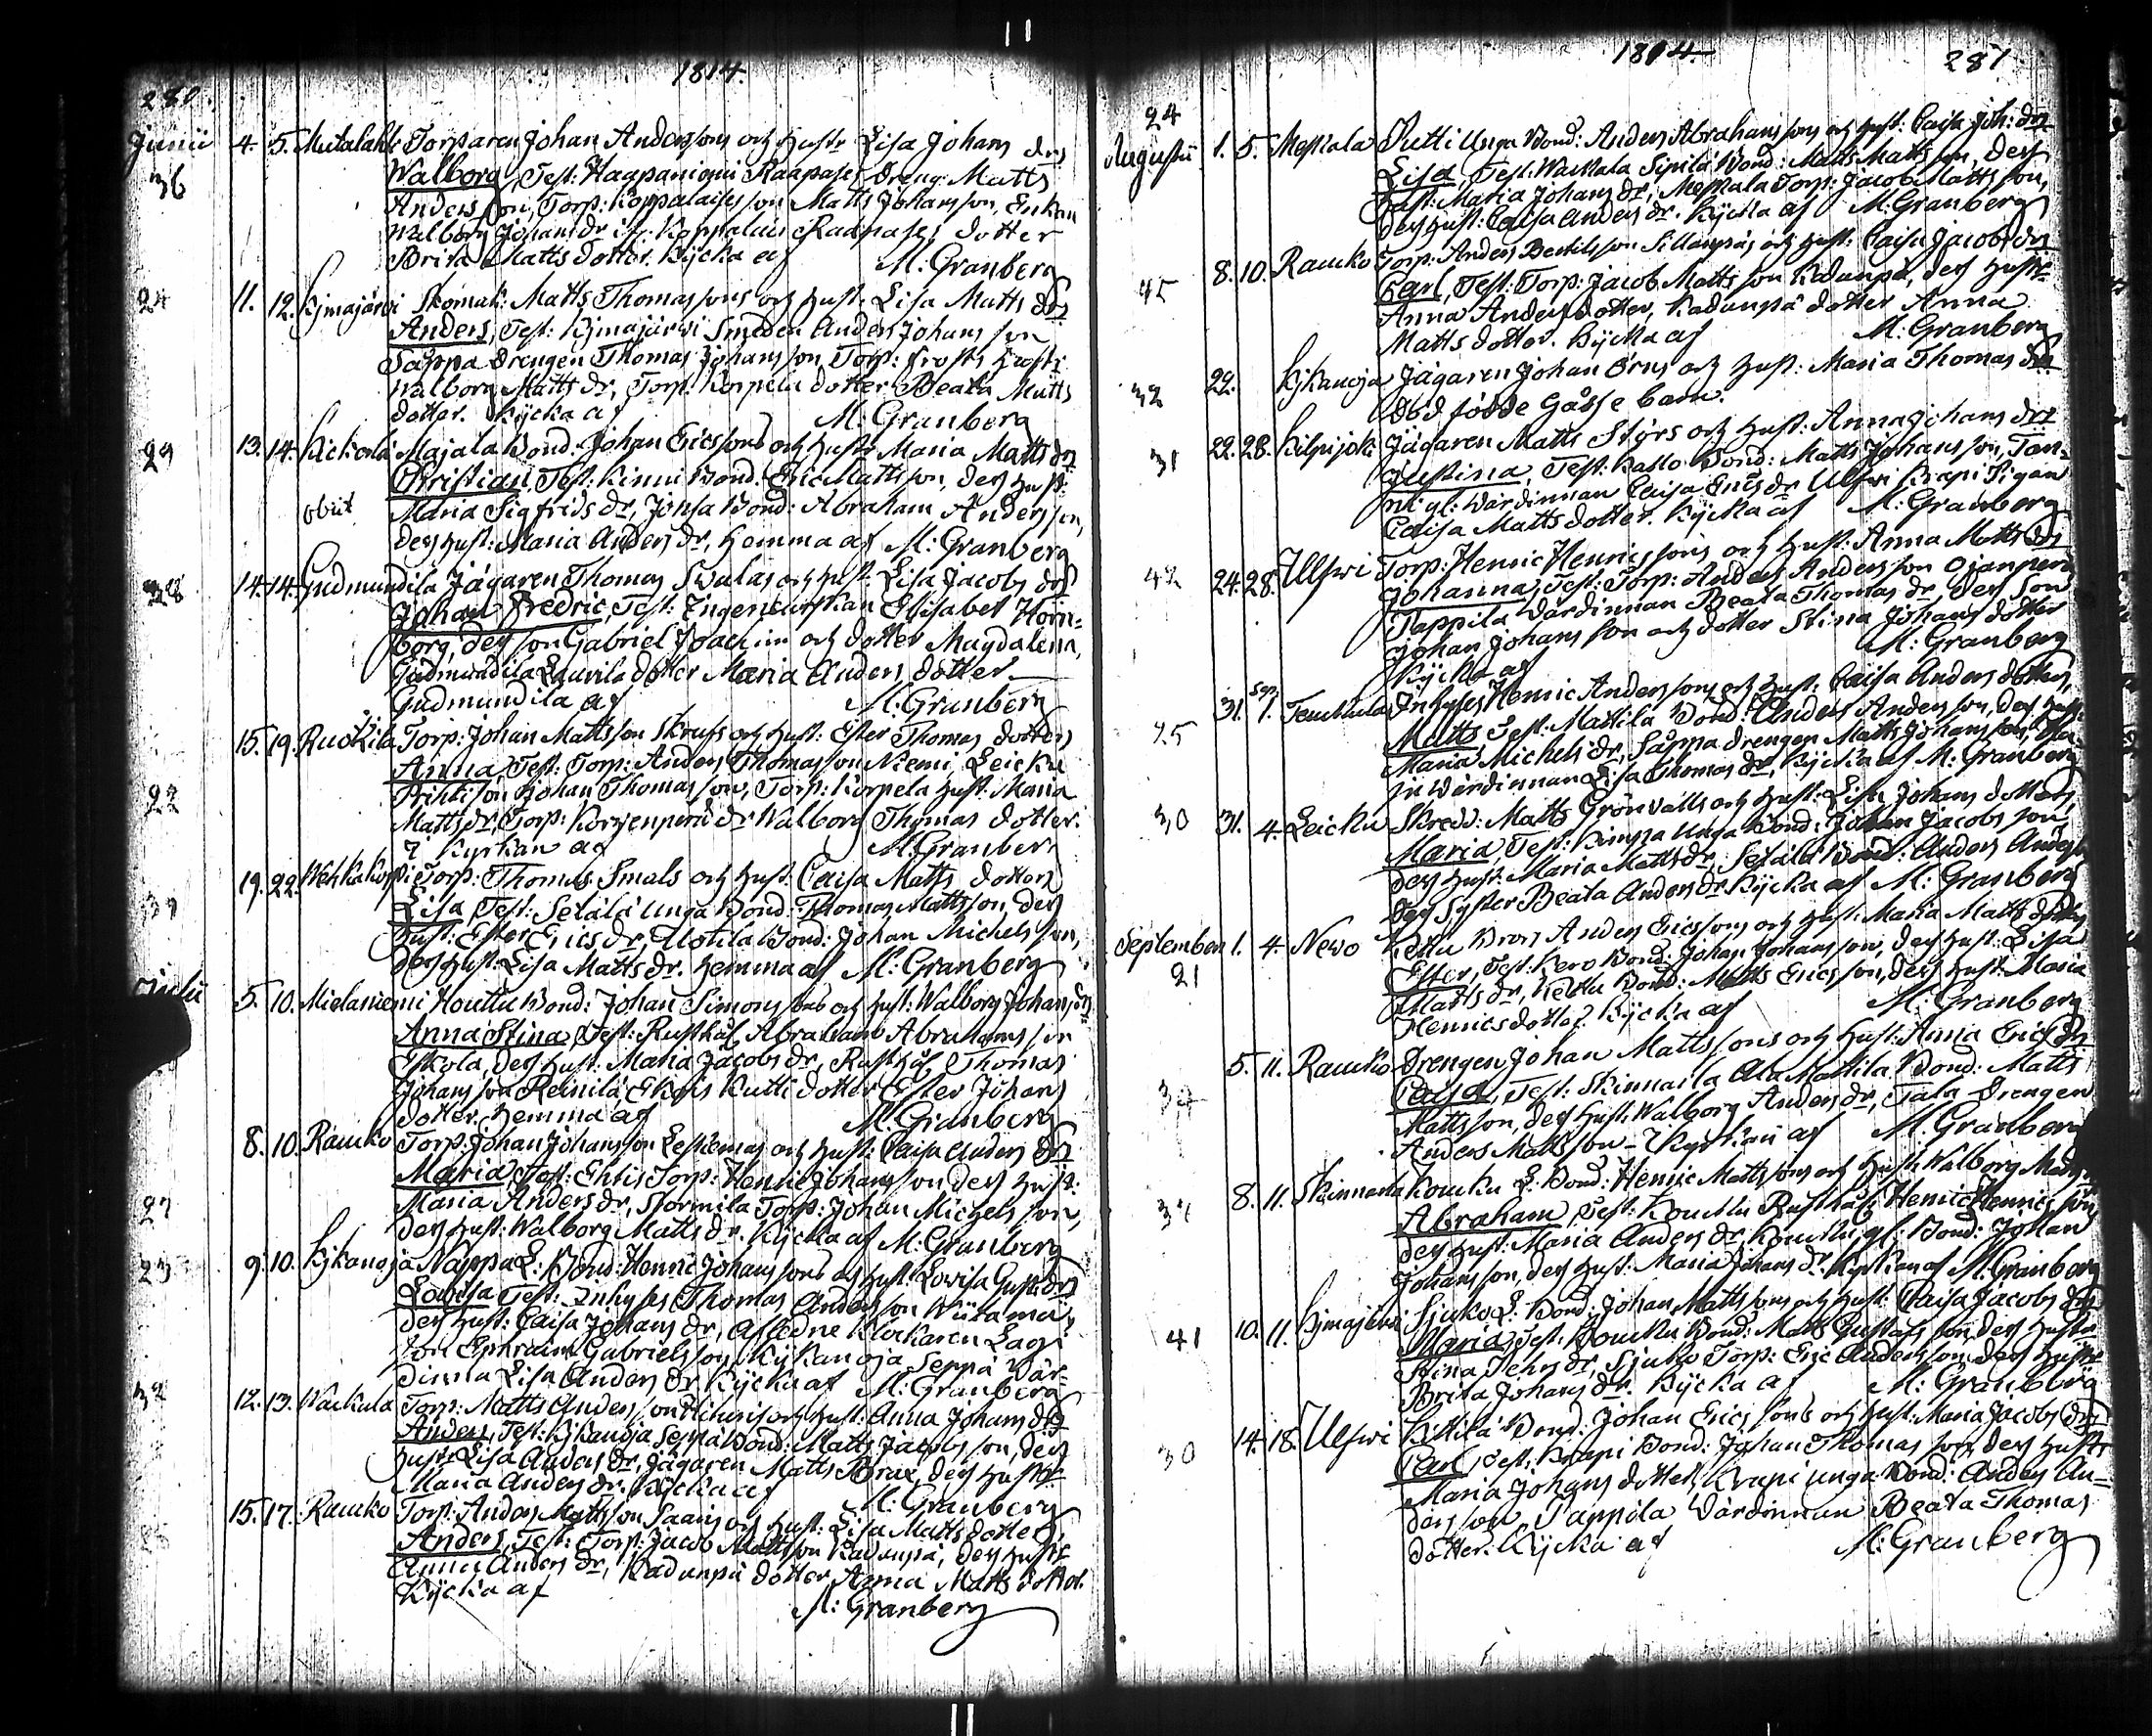 280
1814.
Junii 4. 5. Mutalahti Torparen Johan Anderssons och hustr Lisa Johans drs
36 Walborg, Test: Haapaniemi Raapases Dreng Matts
Andersson, Torp: Koppalaises son Matts Johansson, Enkan
Walborg Johans dr, Raapases dotter
Brita Matts dotter. Kycka af M: Granberg
24 11. 12. Kjmajärwi Skomak: Matts Thomassons och hust: Lisa Matts drs
Anders, Test: Kjmajärwi Smeden Anders Johans son
Säppä Drengen Thomas Johansson, Torp: Frosts hustr
Walborg Matts dr, Torp: Korpela dotter Beata Matts
dotter. Kycka af M: Granberg
29 13. 14. Majala Bond: Johan Ericssons och hustr Maria Matts drs
Christian, Test: Kinni Bond: Eric Mattsson, des hust:
obiit Maria Sigfrids dr, Bond: Abraham Andersson,
des hust: Maria Anders dr, hemma af M: Granberg
28 14. 14. Gudmundila Jägaren Thomas Swalas och hust: Lisa Jacobs drs
Johan Fredric, Test: Ingenieurskan Elisabet Horn-
borg, des son Gabriel Joachim och dotter Magdalena,
Gudmundila Laurila dotter Maria Anders dotter.
Gudmundila af M: Granberg
15. 19. Ruokila Torp: Johan Mattsson Skrufs och hust: Ester Thomas dotters
Anna, Test: Torp: Anders Thomasson Niemi Leicku
22 Prihti son Johan Thomasson, Torp: Korpela hust: Maria
Matts dr, Torp: dr Walborg Thomas dotter.
i Kyrkan af M: Granberg
19. 22. Wehkakoski Torp: Thomas Smals och hust: Caisa Matts dotters
Lisa, Test: Setälä unga Bond: Thomas Mattsson, des
hust: Ester Erics dr, Uotila Bond: Johan Michelsson,
des hust: Lisa Matts dr. hemma af M: Granberg
Julii 5. 10. Mielaniemi Houttu Bond: Johan Simonssons och hust: Walborg Johans drs
Anna Stina, Test: Rusthål: Abraham Abrahamsson
Eskola, des hust: Maria Jacobs dr, Rusthål: Thomas
Johansson Reinilä, Kutti dotter Ester Johans
dotter. hemma af M: Granberg
8. 10. Raucko Torp: Johan Johansson och hust: Caisa Anders drs
Maria, Test: Torp: Henric Johansson des hust:
27 Maria Anders dr, Stormila Torp: Johan Michelsson,
des hust: Walborg Matts dr. Kycka af M: Granberg
23 9. 10. Kjkanoja Näppä L: Bond: Henric Johanssons och hust: Lowisa Gust: drs
Lowisa Test: Inhyses Thomas Andersson
des hust: Caisa Johans dr, Afledne Klockaren
Ephraim Gabrielsson, Kjkanoja Seppä Wär-
dinna Lisa Anders dr Kycka af M: Granberg
32 12. 13. Wackula Torp: Matts Andersson och hust: Anna Johans drs
Anders, Test: Kjkanoja Seppä Bond: Matts Jacobsson, des
hustr Lisa Anders dr, Jägaren Matts Brax, des hustr
Maria Anders dr. Kycka af M: Granberg
15. 17. Raucko Torp: Anders Mattsson Saaris och hust: Lisa Matts dotters
Anders, Test: Torp: Jacob Mattsson Kadunpä, des hustr
Anna Anders dr, Kadunpä dotter Anna Matts dotter.
Kycka af
M: Granberg
1814.
287
24
Augusti 1. 5. Meskala Putti unga Bond: Anders Abrahamssons och hust: Caisa Joh: drs
Lisa, Test: Wackala Sipilä Bond: Matts Mattsson, des
hust: Maria Johans dr, Meskala Torp: Jacob Mattsson,
des hust: Caisa Anders dr. Kycka af M: Granberg
45 8. 10. Raucko Torp: Anders Bertilsson Sillanpäs och hust: Caisa Jacobs drs
Carl, Test: Torp: Jacob Mattsson Kadunpä, des hustr
Anna Anders dotter, Kadunpä dotter Anna
Matts dotter. Kycka af M: Granberg
32 22. Kjkanoja Jägaren Johan Örns och hust: Maria Thomas drs
död födde Gåsse barn.
31 22. 28. Kilpijoki Jägaren Matts Styrs och hust: Anna Johans drs
Justina, Test: Kallo Bond: Matts Johansson, Tan-
ni gl: Wärdinnan Caisa Erics dr Ulfwi Krapi Pigan
Caisa Matts dotter. Kycka af M: Granberg
42 24. 28. Ulfwi Torp: Henric Henricssons och hust: Anna Matts drs
Johanna, Test: Torp: Anders Andersson Ojanperä
Tappila Wärdinnan Beata Thomas dr, des son
Johan Johansson och dotter Stina Johans dotter
Kycka af M: Granberg
25 31. Sep 1. Teuckula Inhyses Henric Anderssons och hust: Caisa Anders dotters,
Matts Test: Mattila Bond: Anders Andersson, des hust:
Maria Michels dr, Säppä drengen Matts Johansson,
Wärdinnan Lisa Thomas dr, Kycka af M: Granberg
30 31. 4. Leicku Skredd: Matts Grönvalls och hust: Lisa Johans dotters,
Maria, Test: Kimppa unga Bond: Johan Jacobsson,
des hust: Maria Matts dr, Setälä Bond: Anders Anders
des Syster Beata Anders dr Kycka af M: Granberg
September 1. 4. Newo Kettu Bron Anders Ericssons och hust: Maria Matts dotters
21 Ester, Test: Kero Bond: Johan Johansson, des hust: Lisa
Matts dr, Kettu Bond: Matts Ericsson, des hust: Maria
Henrics dotter. Kycka af M: Granberg
34 5. 11. Raucko Drengen Johan Mattssons och hust: Anna Erics drs
Caisa, Test: Skinnaila Ala Mattila Bond: Matts
Mattsson, des hust: Walborg Anders dr, Tala Drengen
Anders Mattsson - i Kyrkan af M: Granberg
34 8. 11. Skinnarla Koucku L: Bond: Henric Mattssons och hust: Walborg Matts
Abraham, Test: Koucku Rusthål: Henric Henricsson,
des hust: Maria Anders dr, Koucku gl: Bond: Johan
Johansson, des hust: Maria Johans dr Kyrkan af M: Granberg
41 10. 11. Kjmajärwi Sjuko L: Bond: Johan Mattssons och hust: Caisa Jacobs drs
Maria, Test: Koucku Bond: Matts Gustafsson, des hustr
Stina Pehrs dr, Sjuko Torp: Eric Andersson, des hustr
Brita Johans dr. Kycka af M: Granberg
30 14. 18. Ulfwi Kittilä Bond: Johan Ericssons och hust: Maria Jacobs drs
Carl, Test: Krapi Bond: Johan Thomasson, des hustr
Maria Johans dotter, Krapi unga Bond: Anders An-
dersson, Tappila Wärdinnan Beata Thomas
dotter. Kycka af M: Granberg